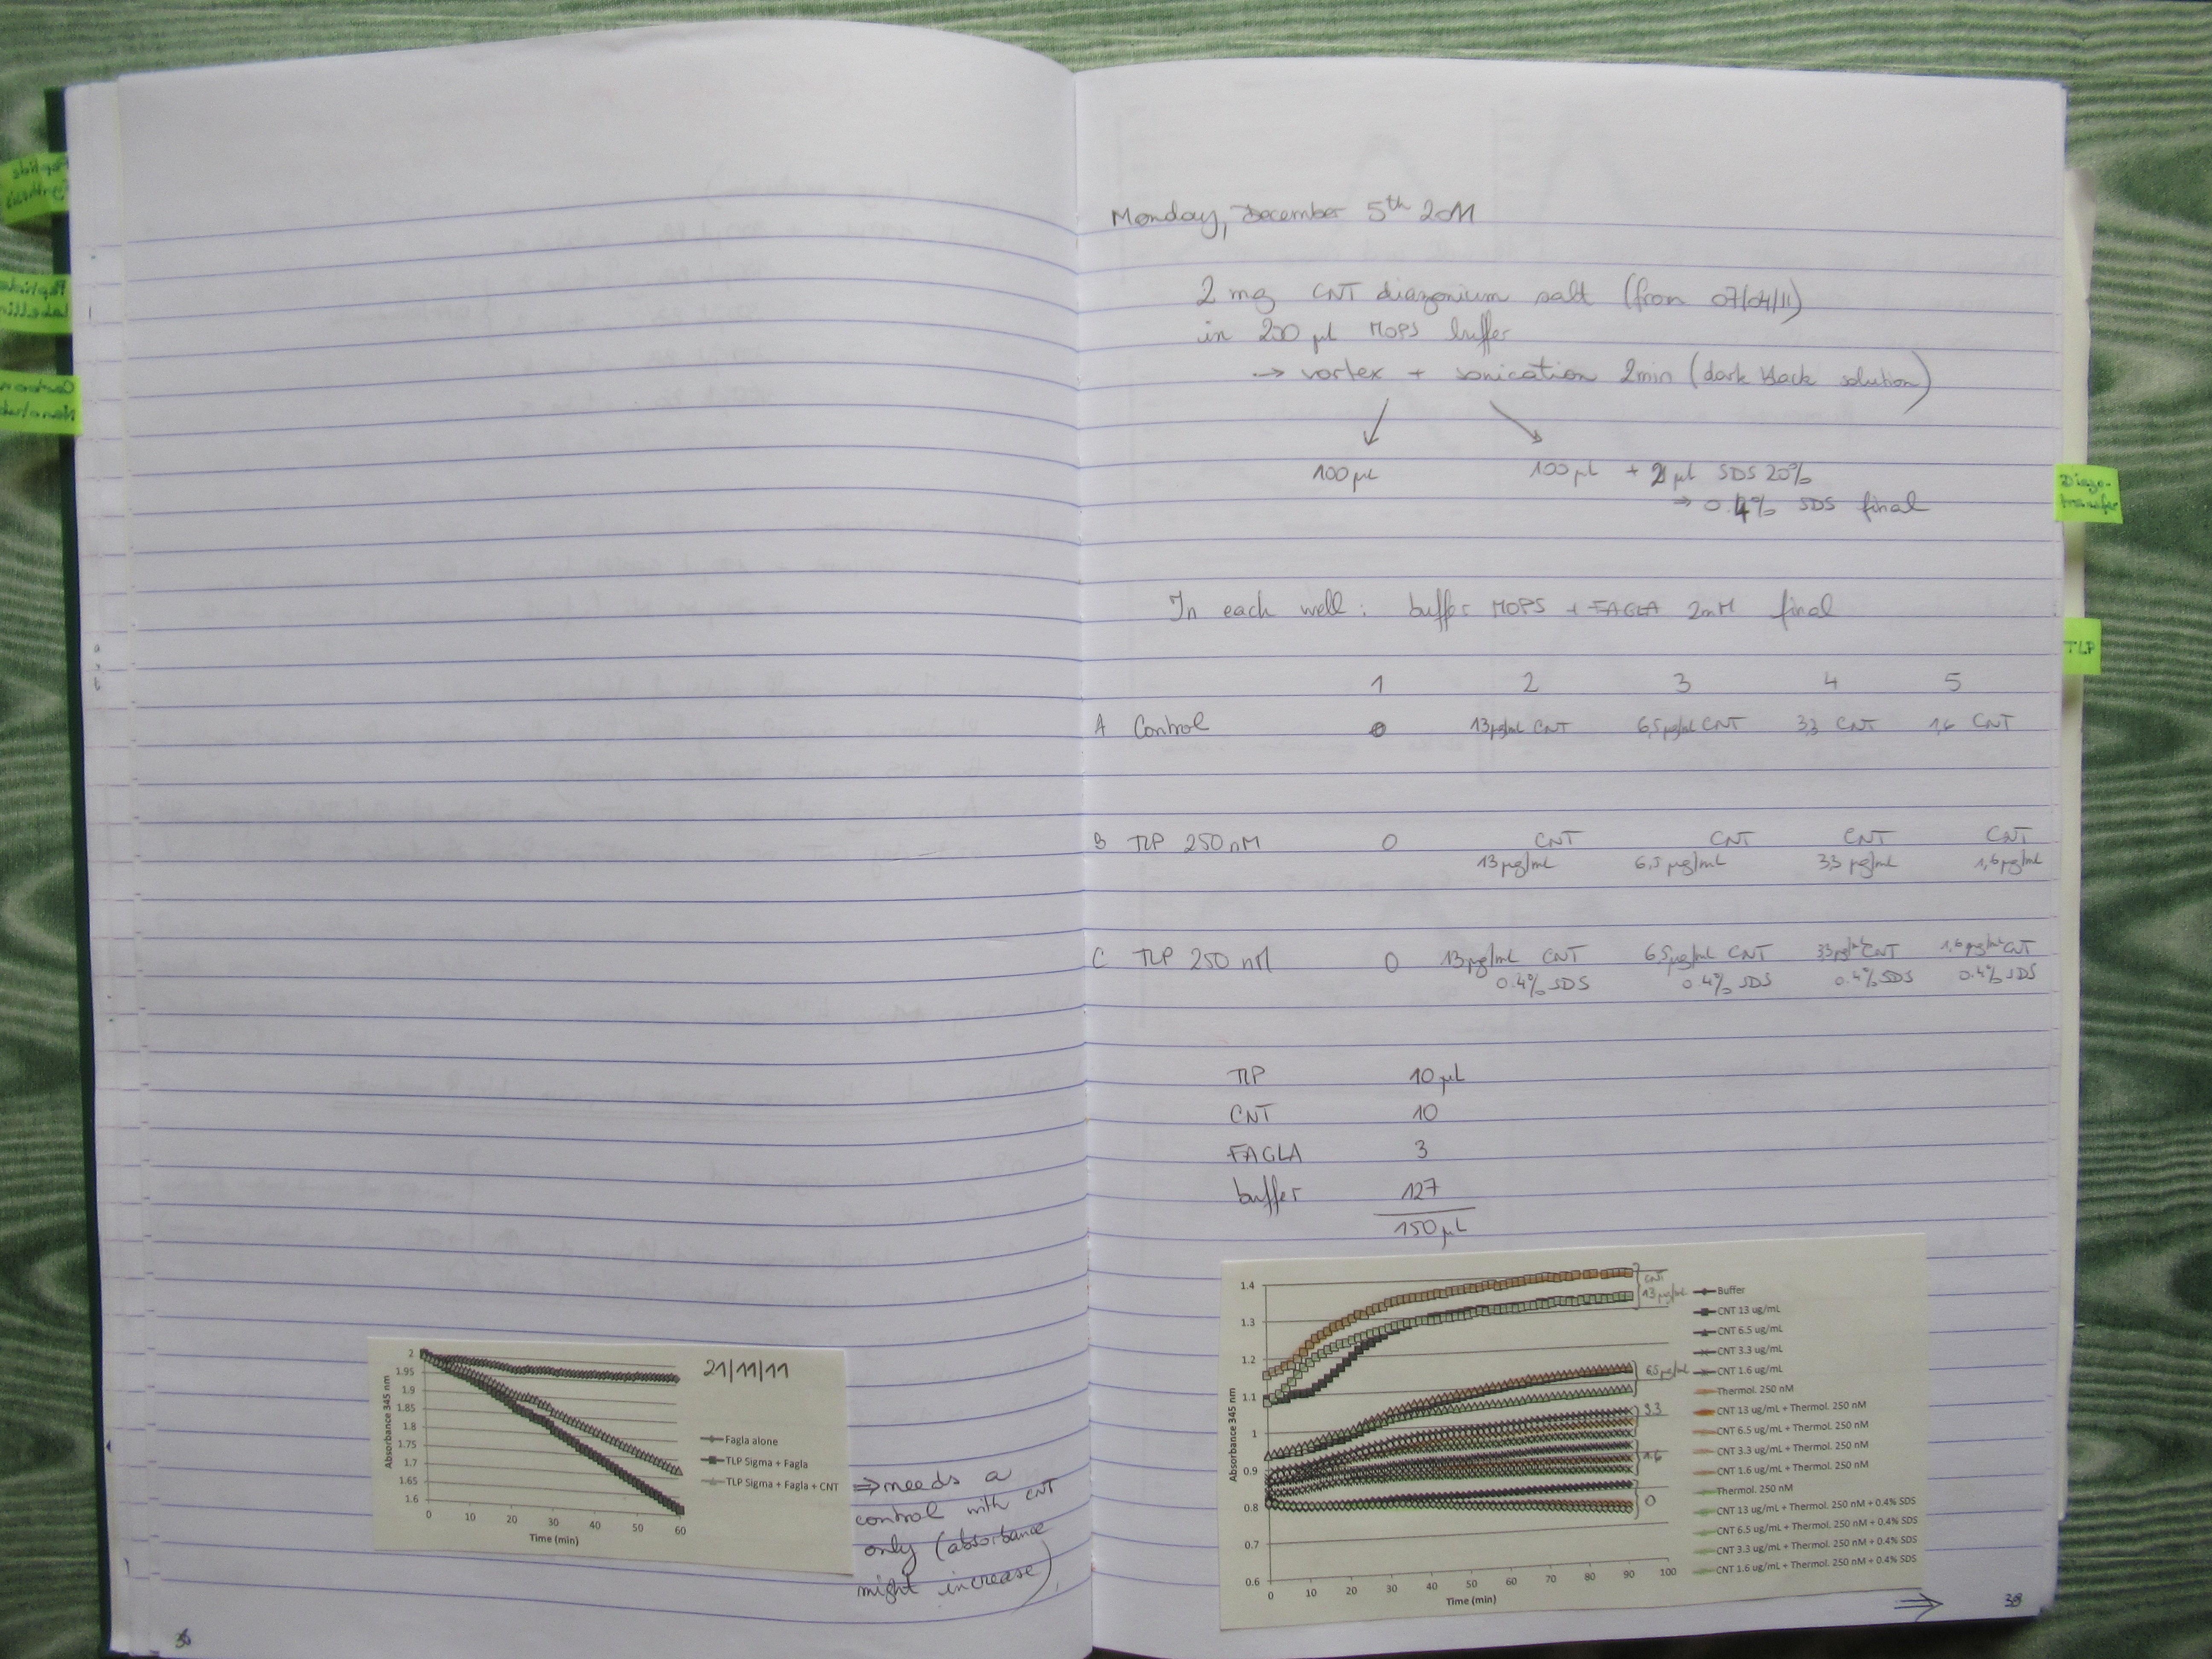 Peptide
Synthesis
Peptide
Labelling
Carbon
21/11/11
2
1.95
1.9
1.85
1.8
1.75
1.7
1.65
1.6
Absorbance 345 nm
0 10 20 30 40 50 60
Time (min)
Fagla alone
TLP Sigma + Fagla
TLP Sigma + Fagla + CNT
⇒ needs a
control with CNT
only (absorbance
might increase)
Monday, December 5th 2011
2 mg CNT diazonium salt (from 07/04/11)
in 200 µl MOPS buffer
→ vortex + sonication 2min (dark black solution)
100 µL 100 µL + 2 µL SDS 20%
⇒ 0.4% SDS final
In each well: buffer MOPS + FAGLA 2mM final
1 2 3 4 5
A Control 0 13µg/mL CNT 6,5µg/mL CNT 3,3 CNT 1,6 CNT
B TLP 250 nM 0 CNT CNT CNT CNT
13 µg/mL 6,5 µg/mL 3,3 µg/mL 1,6 µg/mL
C TLP 250 nM 0 13µg/mL CNT 6,5µg/mL CNT 3,3µg/mL CNT 1,6 µg/mL CNT
0.4% SDS 0.4% SDS 0.4% SDS 0.4% SDS
TLP 10 µL
CNT 10
FAGLA 3
buffer 127
150 µL
Diazo-
transfer
TLP
1.4
1.3
1.2
1.1
1
0.9
0.8
0.7
0.6
Absorbance 345 nm
0 10 20 30 40 50 60 70 80 90 100
Time (min)
CNT
13 µg/mL
6.5 µg/mL
3.3
1.6
0
Buffer
CNT 13 ug/mL
CNT 6.5 ug/mL
CNT 3.3 ug/mL
CNT 1.6 ug/mL
Thermol. 250 nM
CNT 13 ug/mL + Thermol. 250 nM
CNT 6.5 ug/mL + Thermol. 250 nM
CNT 3.3 ug/mL + Thermol. 250 nM
CNT 1.6 ug/mL + Thermol. 250 nM
Thermol. 250 nM
CNT 13 ug/mL + Thermol. 250 nM + 0.4% SDS
CNT 6.5 ug/mL + Thermol. 250 nM + 0.4% SDS
CNT 3.3 ug/mL + Thermol. 250 nM + 0.4% SDS
CNT 1.6 ug/mL + Thermol. 250 nM + 0.4% SDS
⇒